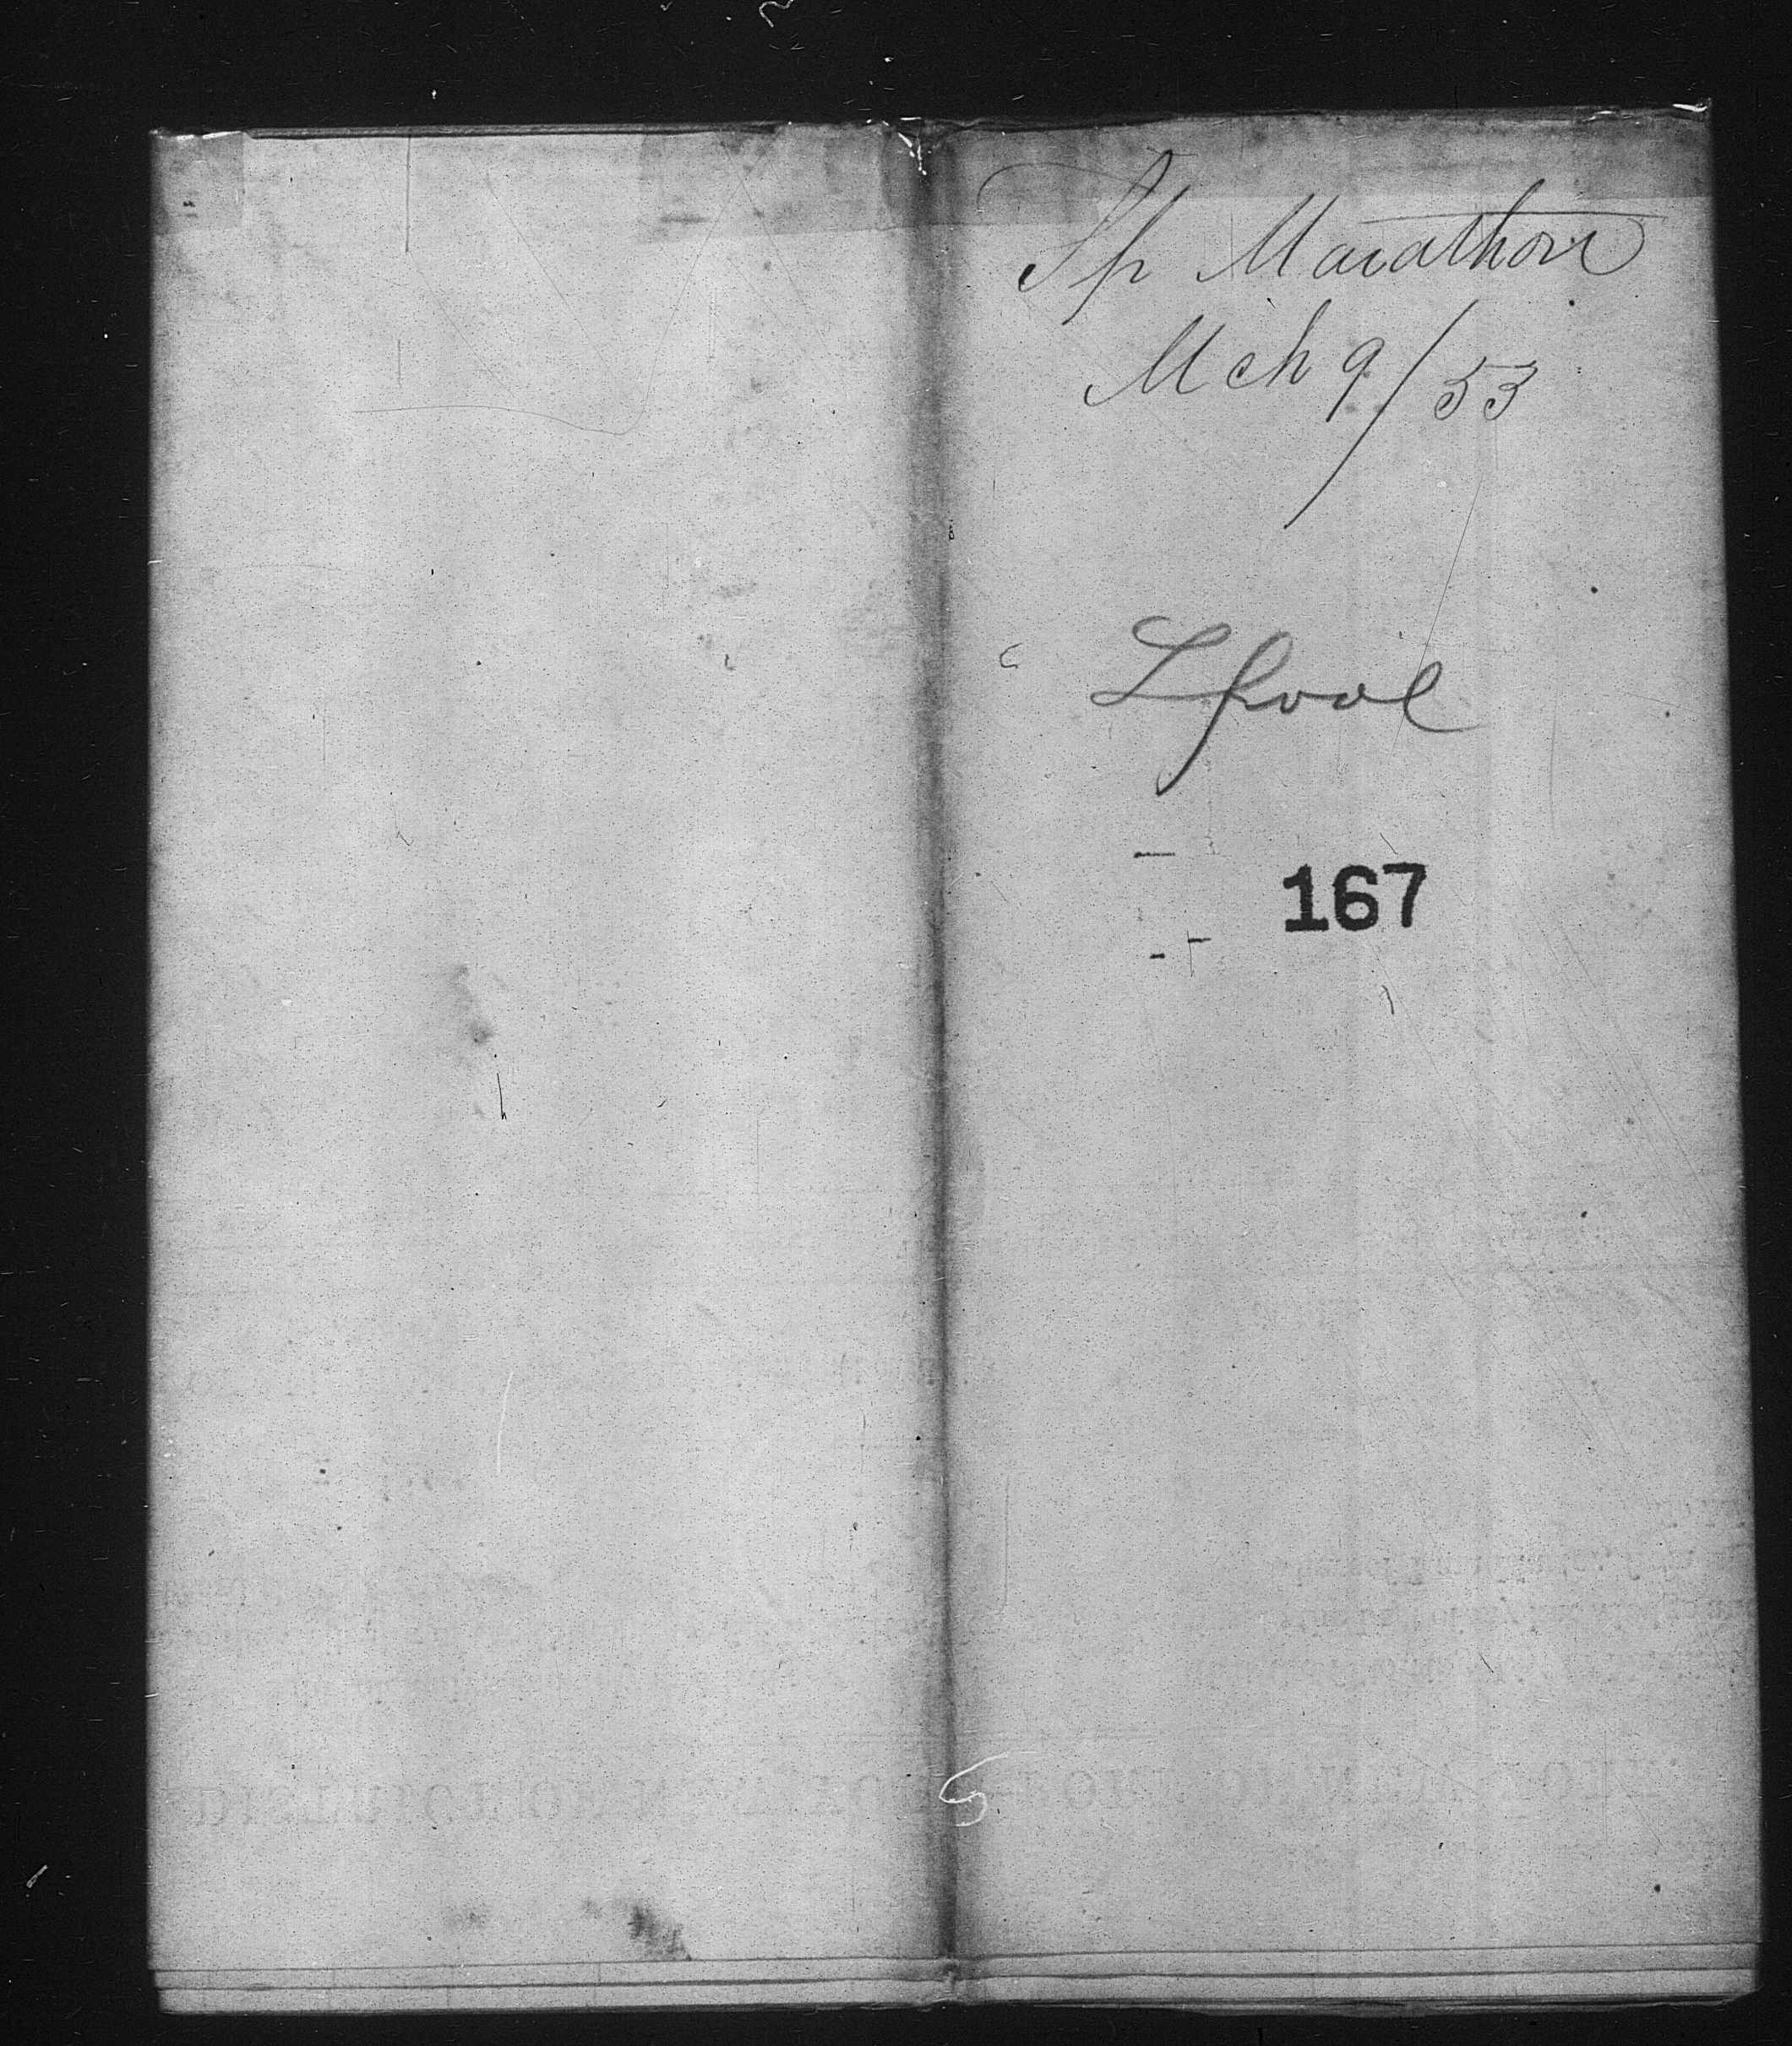 Sp Marathon
Mch 9/53
Lpool
167